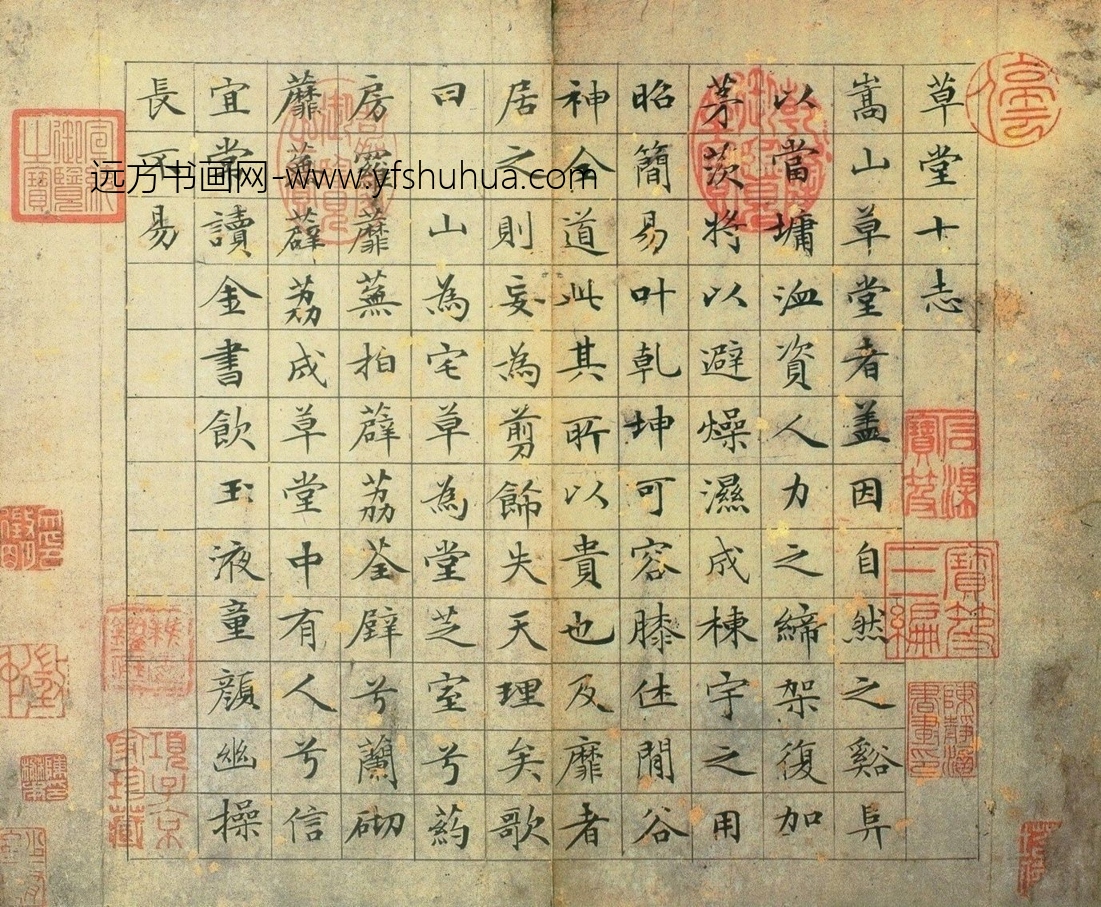 草堂十志
嵩山草堂者盖因自然之谿阜
以當墉洫資人力之締架復加
茅茨將以避燥濕成棟宇之用
昭簡易叶乹坤可容膝休閒谷
神合道此其所以貴也及靡者
居之則妄為剪餙失天理矣歌
曰山為宅草為堂芝室兮葯
房羅蘼蕪拍薜荔荃壁兮蘭砌
蘼蕪薜荔成草堂中有人兮信
宜常讀金書飲玉液童顏幽操
長不易
远方书画网-www.yfshuhua.com
石渠寶笈
寶笈三編
嘉慶御覽之寶
宣統御覽之寶
項子京家珍藏